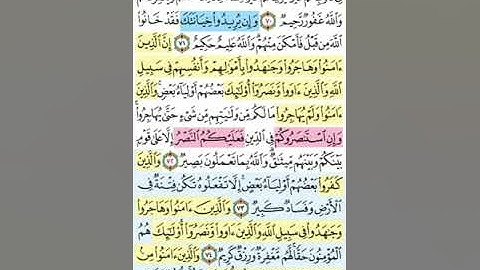 وَاللَّهُ غَفُورٌ رَّحِيمٌ ٧٠ وَإِن يُرِيدُوا خِيَانَتَكَ فَقَدْ خَانُوا
اللَّهَ مِن قَبْلُ فَأَمْكَنَ مِنْهُمْ وَاللَّهُ عَلِيمٌ حَكِيمٌ ٧١ إِنَّ الَّذِينَ
ءَامَنُوا وَهَاجَرُوا وَجَاهَدُوا بِأَمْوَالِهِمْ وَأَنفُسِهِمْ فِي سَبِيلِ
اللَّهِ وَالَّذِينَ ءَاوَوا وَّنَصَرُوا أُولَٰئِكَ بَعْضُهُمْ أَوْلِيَاءُ بَعْضٍ وَالَّذِينَ
ءَامَنُوا وَلَمْ يُهَاجِرُوا مَا لَكُم مِّن وَلَايَتِهِم مِّن شَيْءٍ حَتَّىٰ يُهَاجِرُوا
وَإِنِ اسْتَنصَرُوكُمْ فِي الدِّينِ فَعَلَيْكُمُ النَّصْرُ إِلَّا عَلَىٰ قَوْمٍ
بَيْنَكُمْ وَبَيْنَهُم مِّيثَاقٌ وَاللَّهُ بِمَا تَعْمَلُونَ بَصِيرٌ ٧٢ وَالَّذِينَ
كَفَرُوا بَعْضُهُمْ أَوْلِيَاءُ بَعْضٍ إِلَّا تَفْعَلُوهُ تَكُن فِتْنَةٌ فِي
الْأَرْضِ وَفَسَادٌ كَبِيرٌ ٧٣ وَالَّذِينَ ءَامَنُوا وَهَاجَرُوا
وَجَاهَدُوا فِي سَبِيلِ اللَّهِ وَالَّذِينَ ءَاوَوا وَّنَصَرُوا أُولَٰئِكَ هُمُ
الْمُؤْمِنُونَ حَقًّا لَّهُم مَّغْفِرَةٌ وَرِزْقٌ كَرِيمٌ ٧٤ وَالَّذِينَ ءَامَنُوا مِن